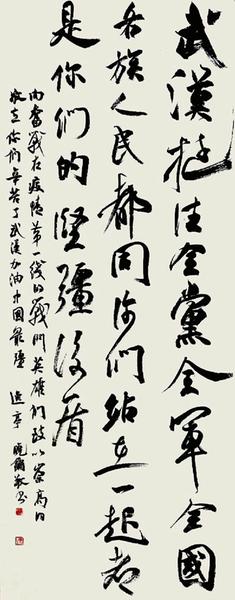 武漢挺住全黨全軍全國
各族人民都同你們站在一起都
是你們的堅彊後盾
向奮戰在疫情第一線的戰鬥英雄們致以崇高的
敬意你們辛苦了武漢加油中國最